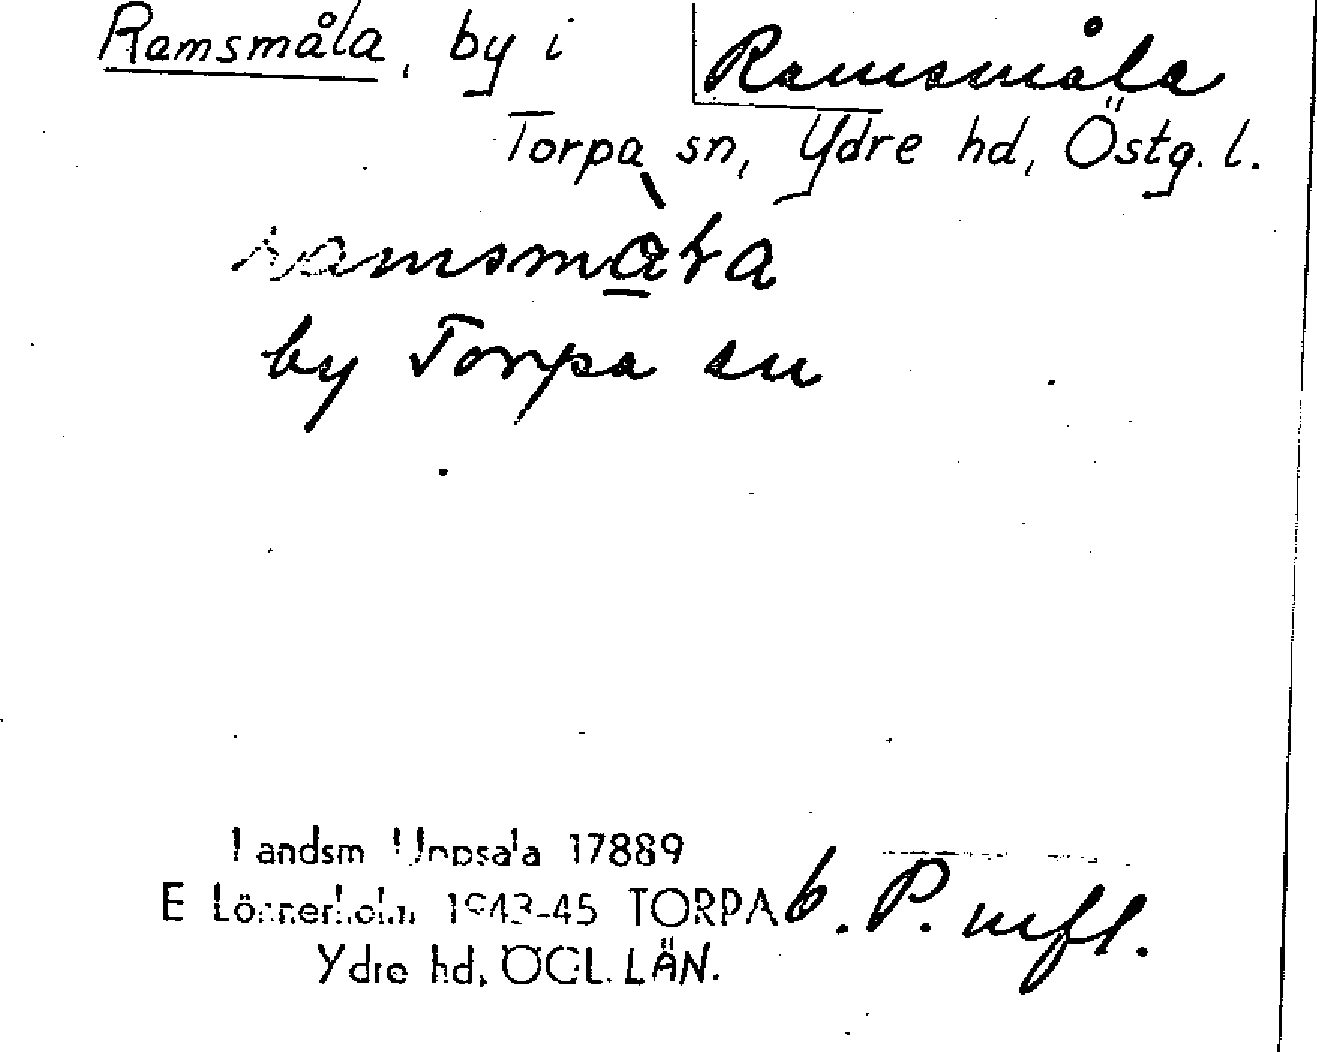 Ramsmåla, by i
Ramsmåla
Torpa sn, Ydre hd, Östg. l.
ramsmàla
by Torpa sn
Landsm Uppsala 17889
E Lönnerholm 1943-45 TORPA
b. P. mfl.
Ydre hd, ÖGL. LÄN.